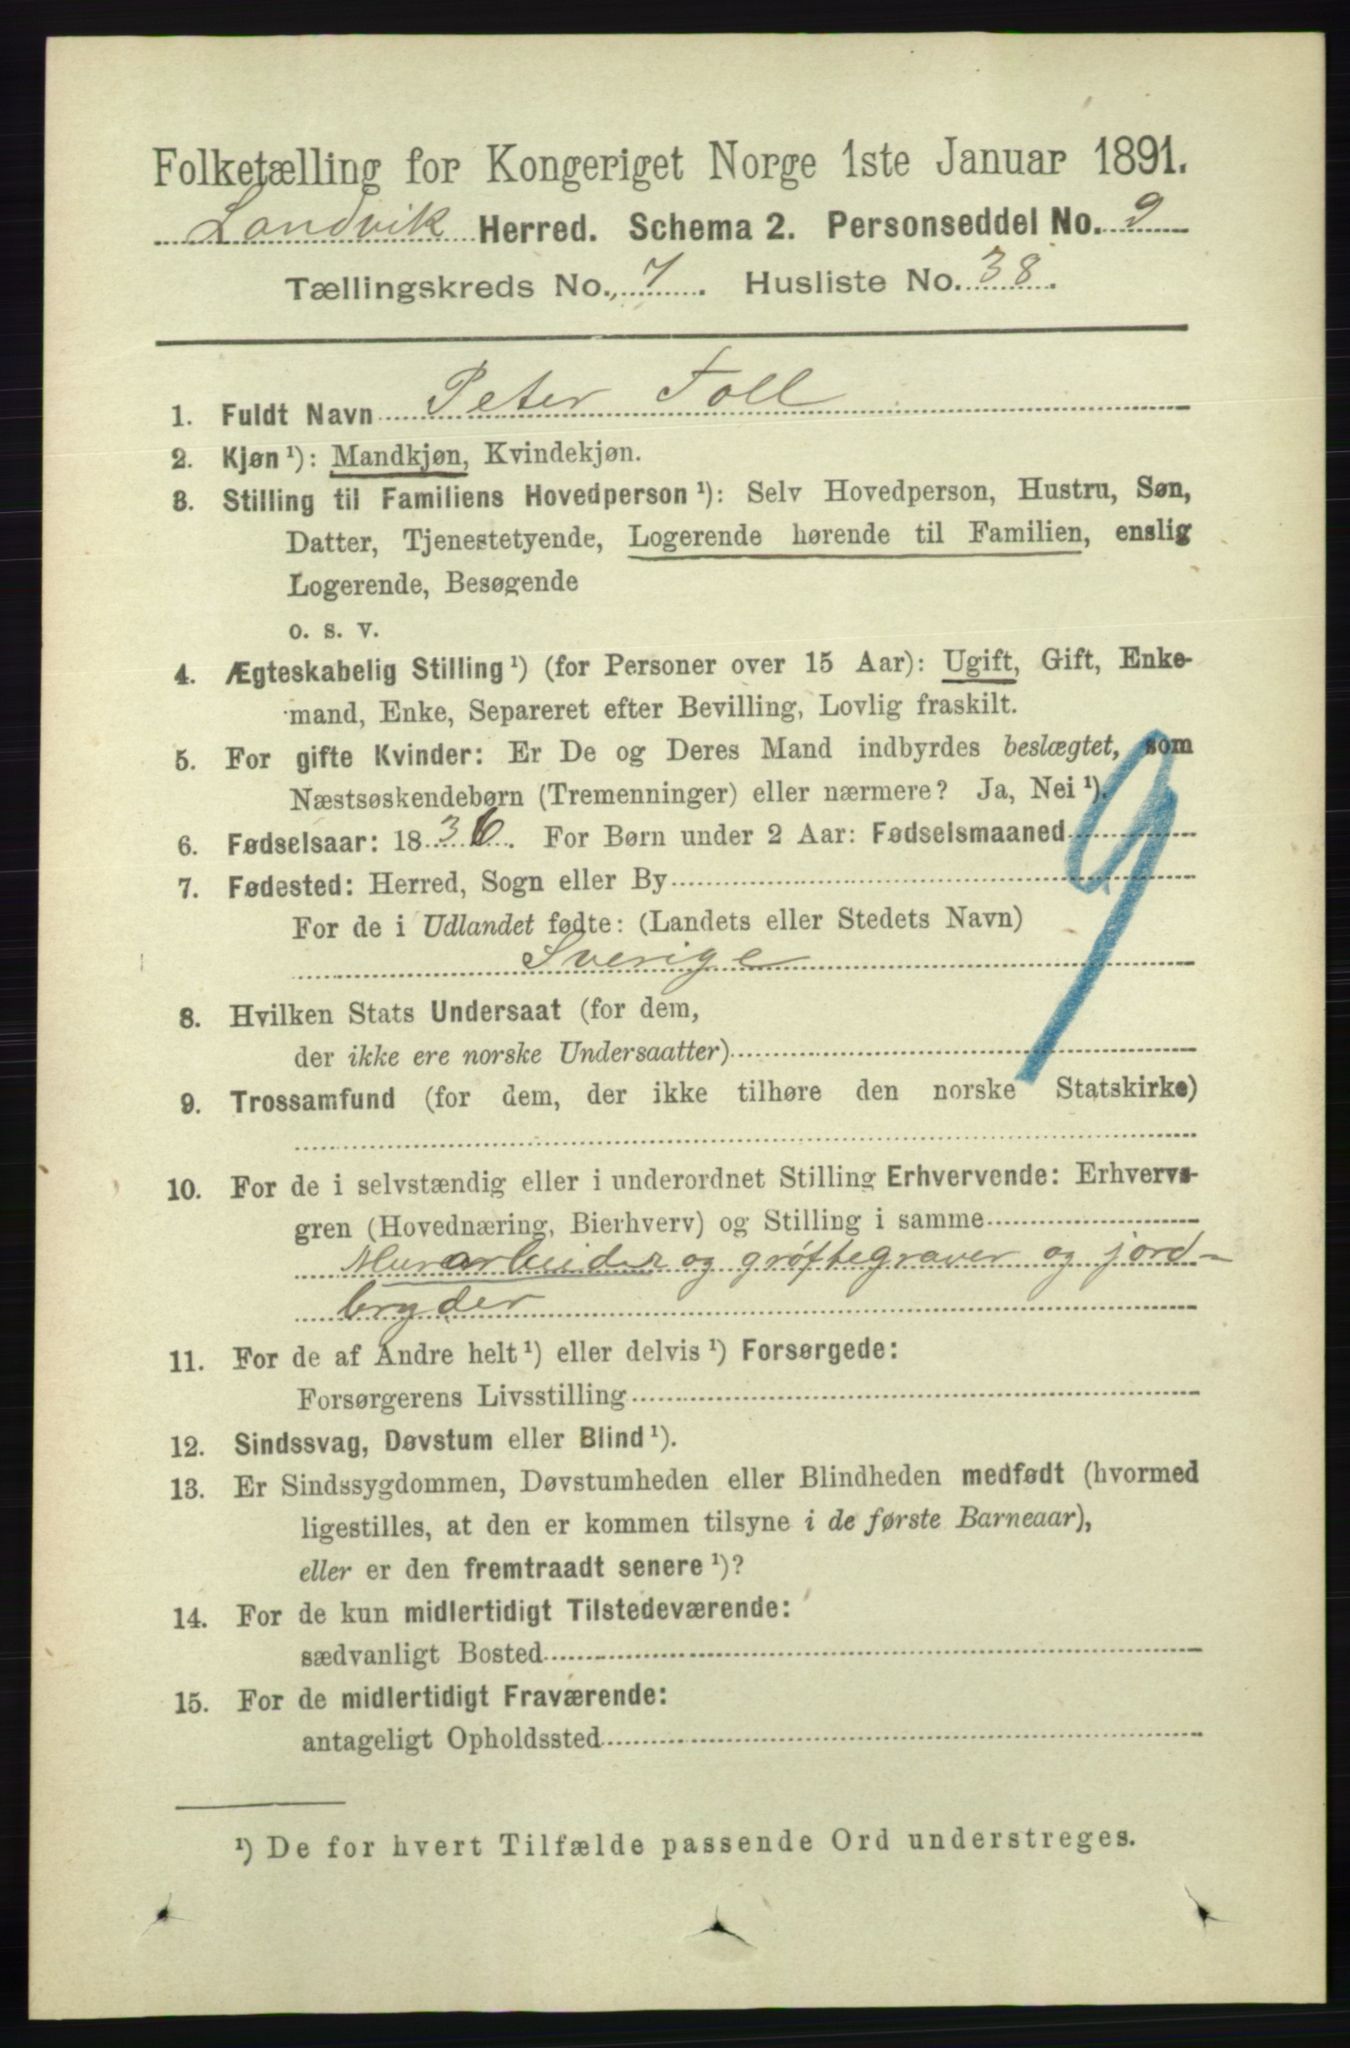 Folketælling for Kongeriget Norge 1ste Januar 1891.
Landvik Herred. Schema 2. Personseddel No. 9
Tællingskreds No. 7. Husliste No. 38.
1. Fuldt Navn Peter Foll
2. Kjøn ¹): Mandkjøn, Kvindekjøn.
3. Stilling til Familiens Hovedperson ¹): Selv Hovedperson, Hustru, Søn,
Datter, Tjenestetyende, Logerende hørende til Familien, enslig
Logerende, Besøgende
o. s. v.
4. Ægteskabelig Stilling ¹) (for Personer over 15 Aar): Ugift, Gift, Enke-
mand, Enke, Separeret efter Bevilling, Lovlig fraskilt.
5. For gifte Kvinder: Er De og Deres Mand indbyrdes beslægtet, som
Næstsøskendebørn (Tremenninger) eller nærmere? Ja, Nei ¹).
6. Fødselsaar: 1836. For Børn under 2 Aar: Fødselsmaaned
9
7. Fødested: Herred, Sogn eller By
For de i Udlandet fødte: (Landets eller Stedets Navn)
Sverige
8. Hvilken Stats Undersaat (for dem,
der ikke ere norske Undersaatter)
9. Trossamfund (for dem, der ikke tilhøre den norske Statskirke)
10. For de i selvstændig eller i underordnet Stilling Erhvervende: Erhvervs-
gren (Hovednæring, Bierhverv) og Stilling i samme
Murarbeider og grøftegraver og jord-
bryder
11. For de af Andre helt ¹) eller delvis ¹) Forsørgede:
Forsørgerens Livsstilling
12. Sindssvag, Døvstum eller Blind ¹).
13. Er Sindssygdommen, Døvstumheden eller Blindheden medfødt (hvormed
ligestilles, at den er kommen tilsyne i de første Barneaar),
eller er den fremtraadt senere ¹)?
14. For de kun midlertidigt Tilstedeværende:
sædvanligt Bosted
15. For de midlertidigt Fraværende:
antageligt Opholdssted
¹) De for hvert Tilfælde passende Ord understreges.